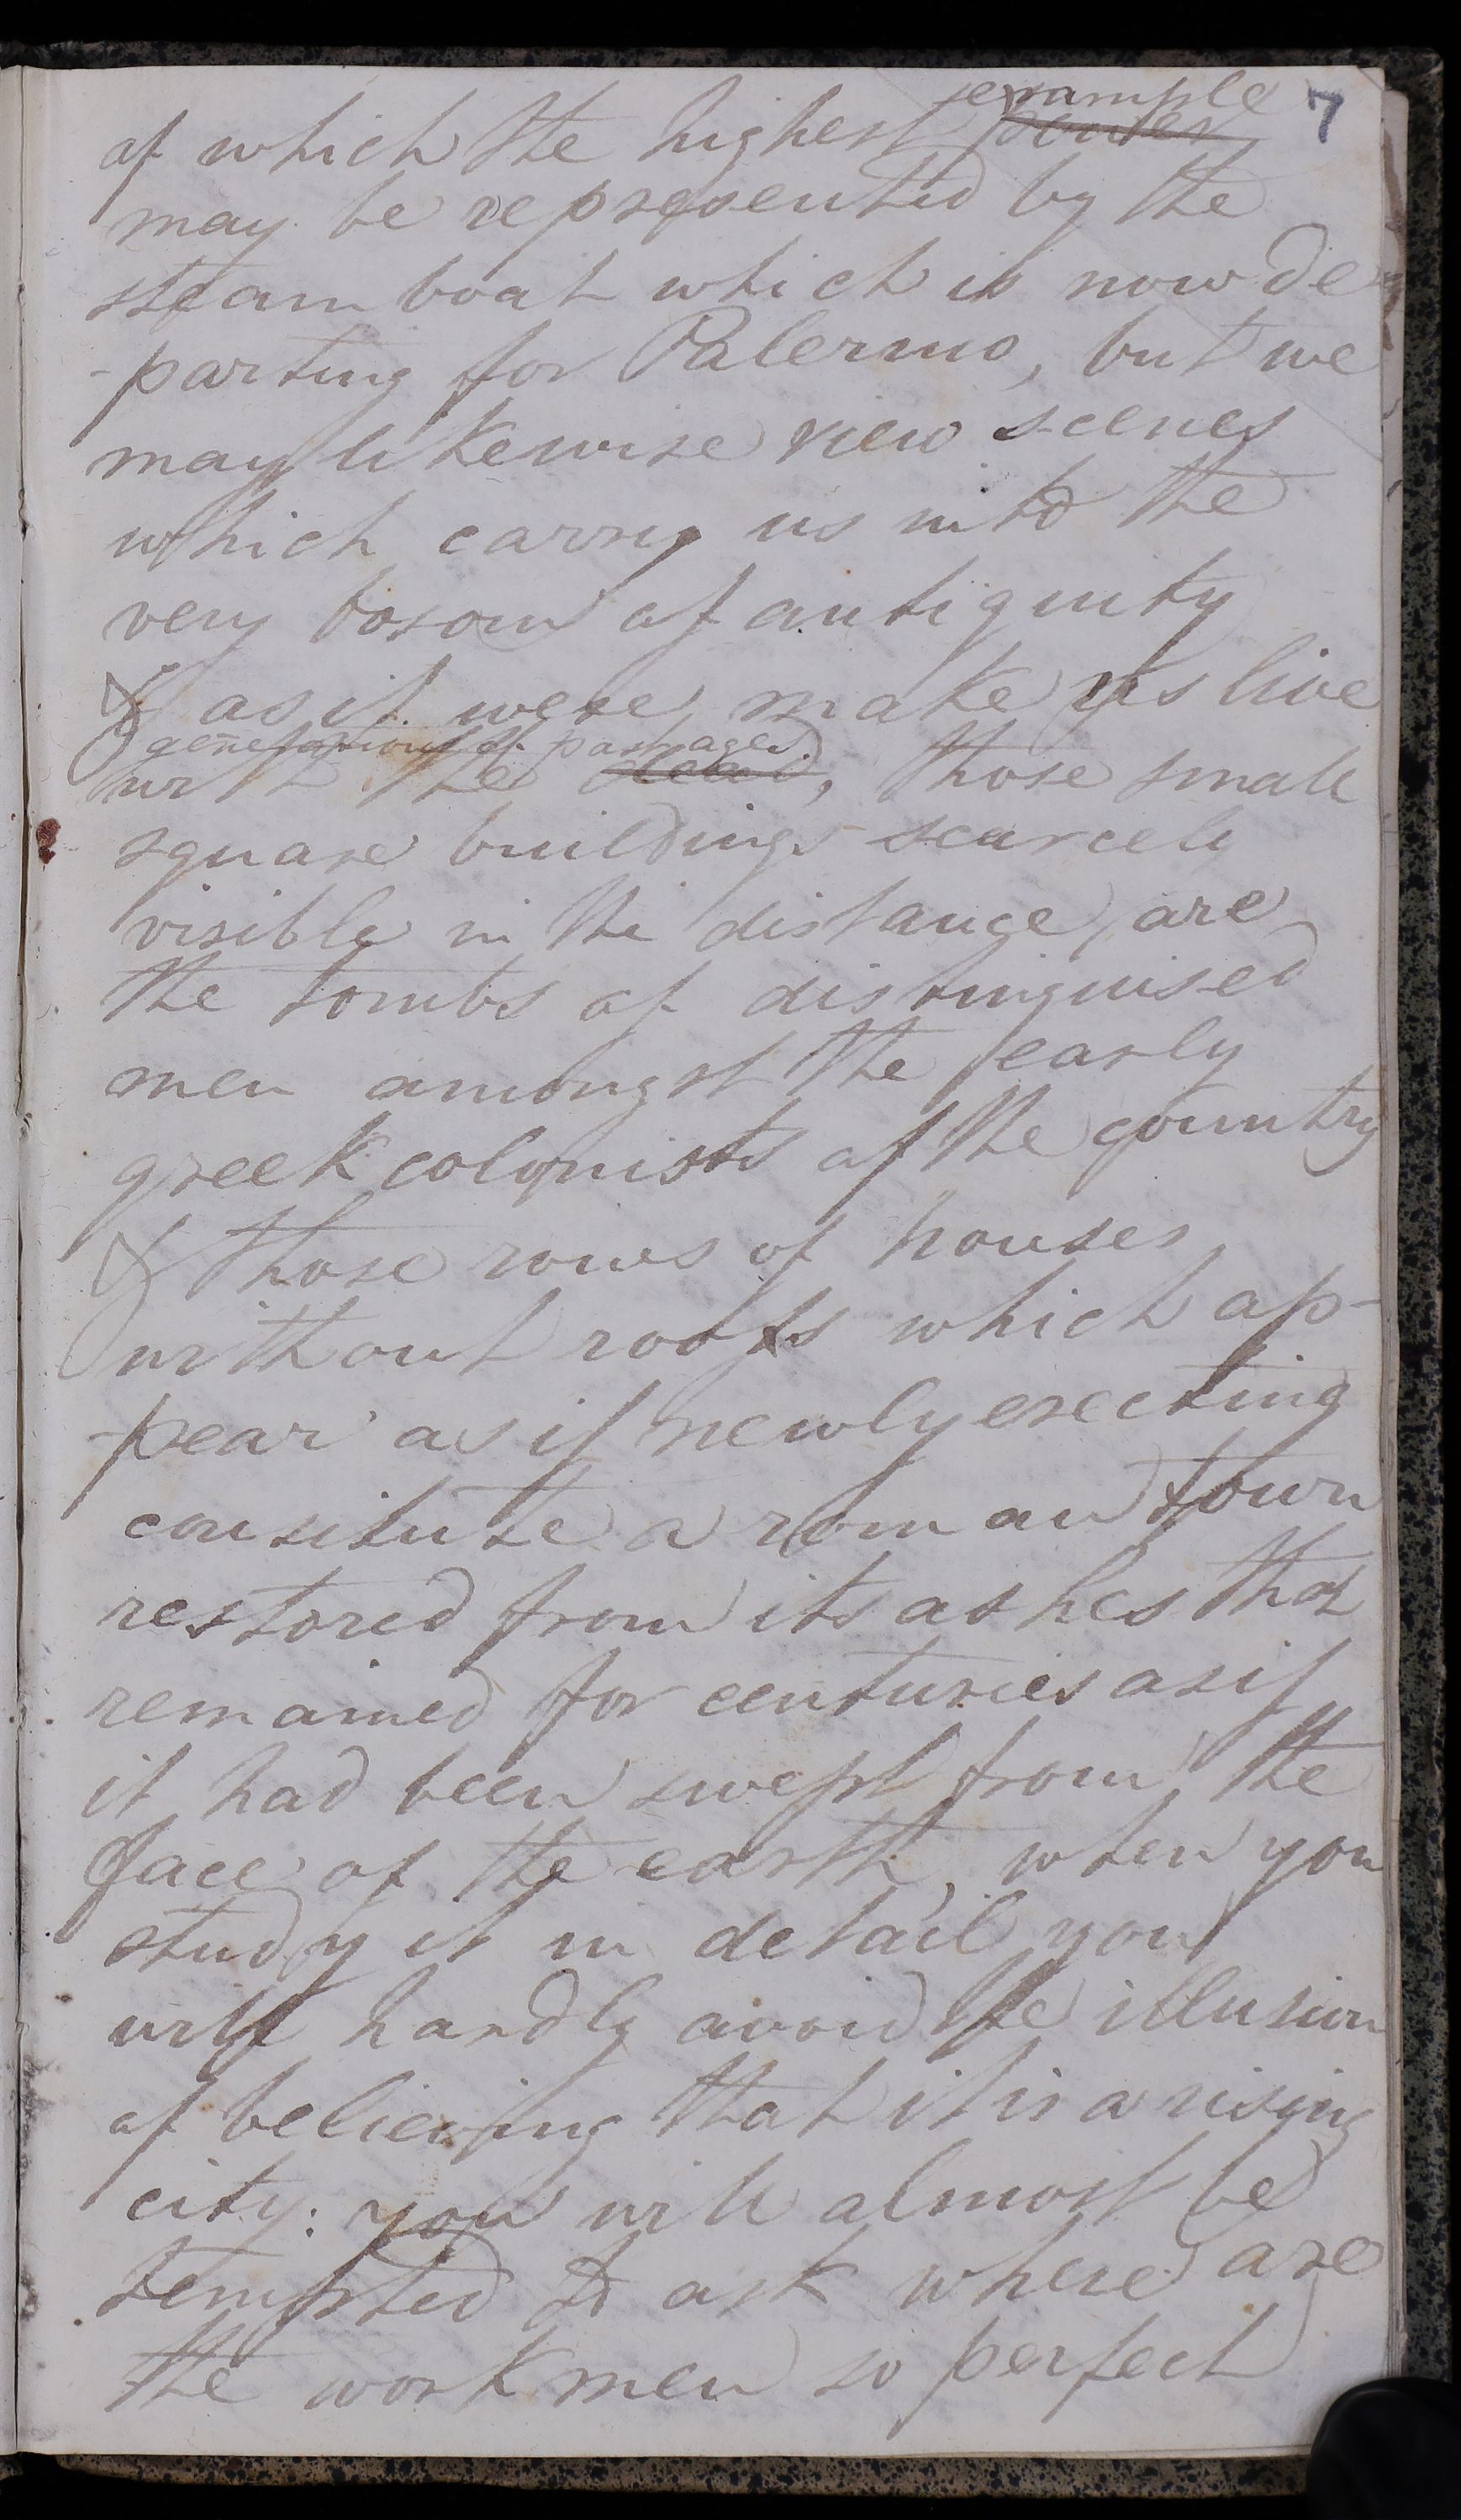 7
example
of which the highest power
may be represented by the
steam boat which is now de
-parting for Palermo, but we
may likewise view scenes
which carry us into the
very bosom of antiquity
& as it were make us live
generations of past ages
with the dead, those small
square buildings scarcely
visible in the distance, are
the tombs of distinguised
men amongst the early
greek colonists of the country
& those rows of houses,
without roofs which ap-
-pear as if newly erecting
consitute a roman town
restored from its ashes that
remained for centuries as if
it had been swept from the
face of the earth, when you
study it in detail you
will hardly avoid the illusion
of believing that it is a rising
city: you will almost be
tempted to ask where are
the workmen so perfect